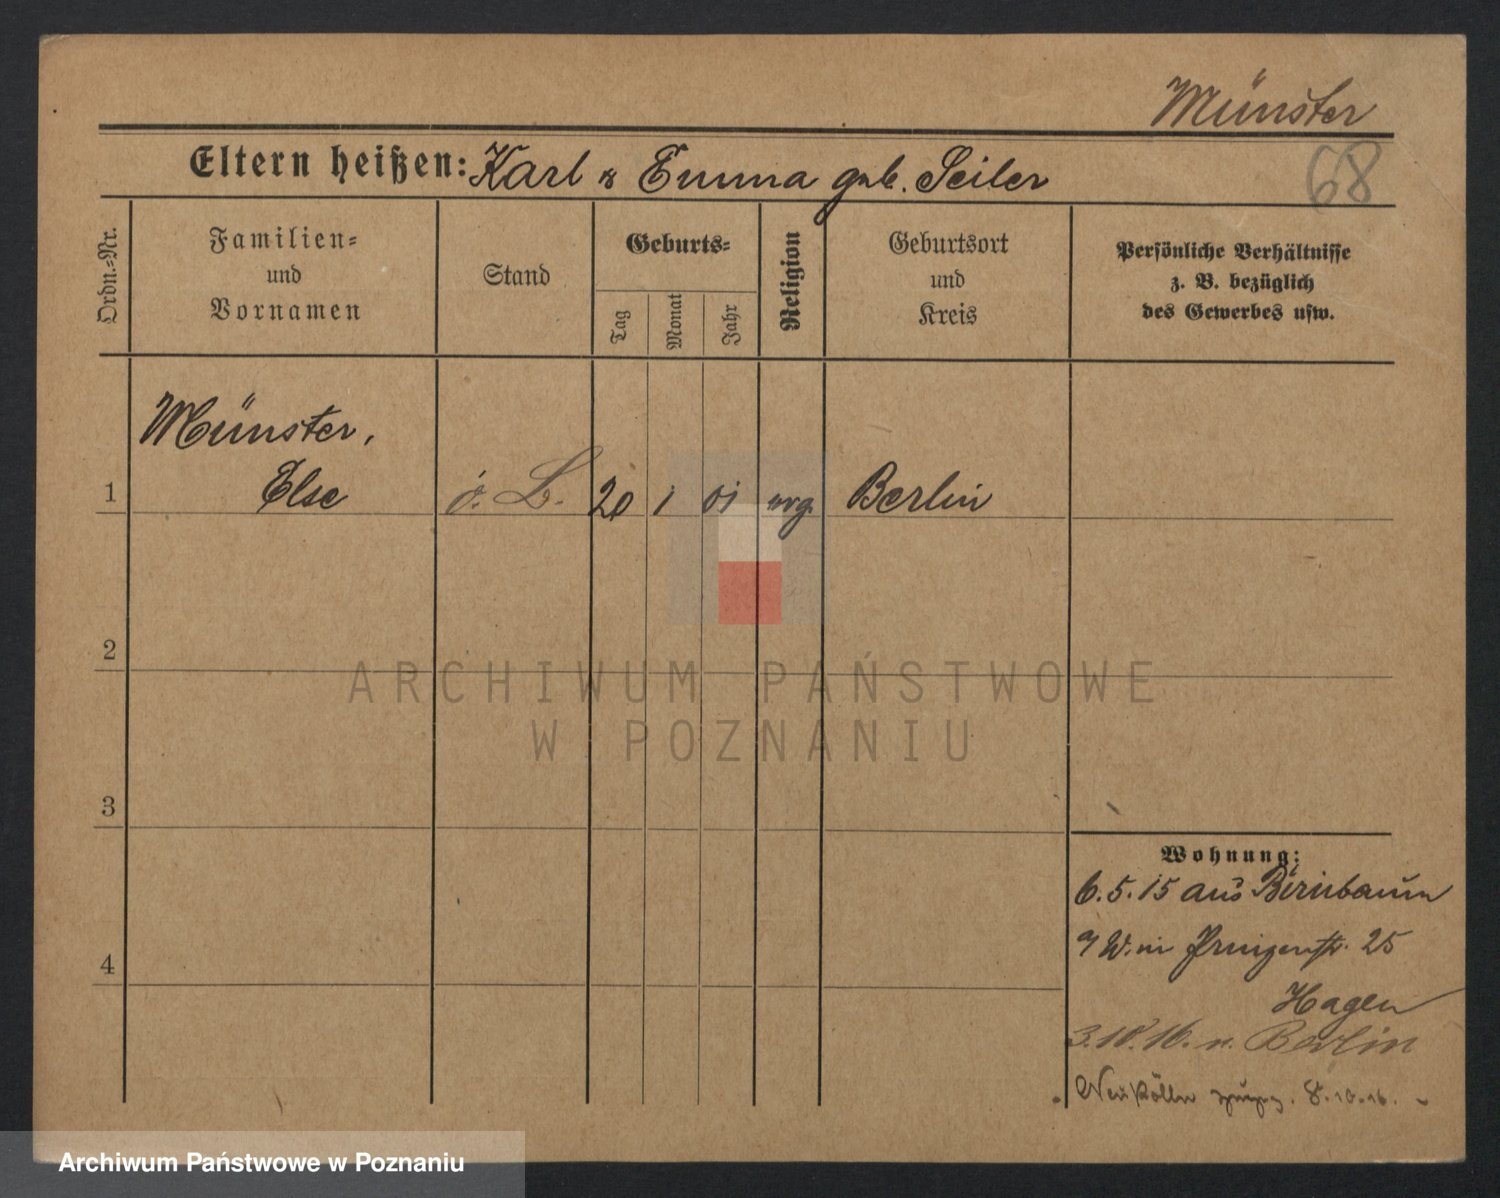 Münster
Eltern heißen: Karl & Emma geb. Seiler
68
Ordn.-Nr.
Familien-
und
Vornamen
Stand
Geburts-
Tag
Monat
Jahr
Religion
Geburtsort
und
Kreis
Persönliche Verhältnisse
z. B. bezüglich
des Gewerbes usw.
Münster,
1 Else o. B. 20 1 01 evg. Berlin
2
3
4
ARCHIWUM PAŃSTWOWE
W POZNANIU
Wohnung:
6.5.15 aus Birnbaum
25
Hagen
3.10.16. n. Berlin
Neukölln 8.10.16.
Archiwum Państwowe w Poznaniu